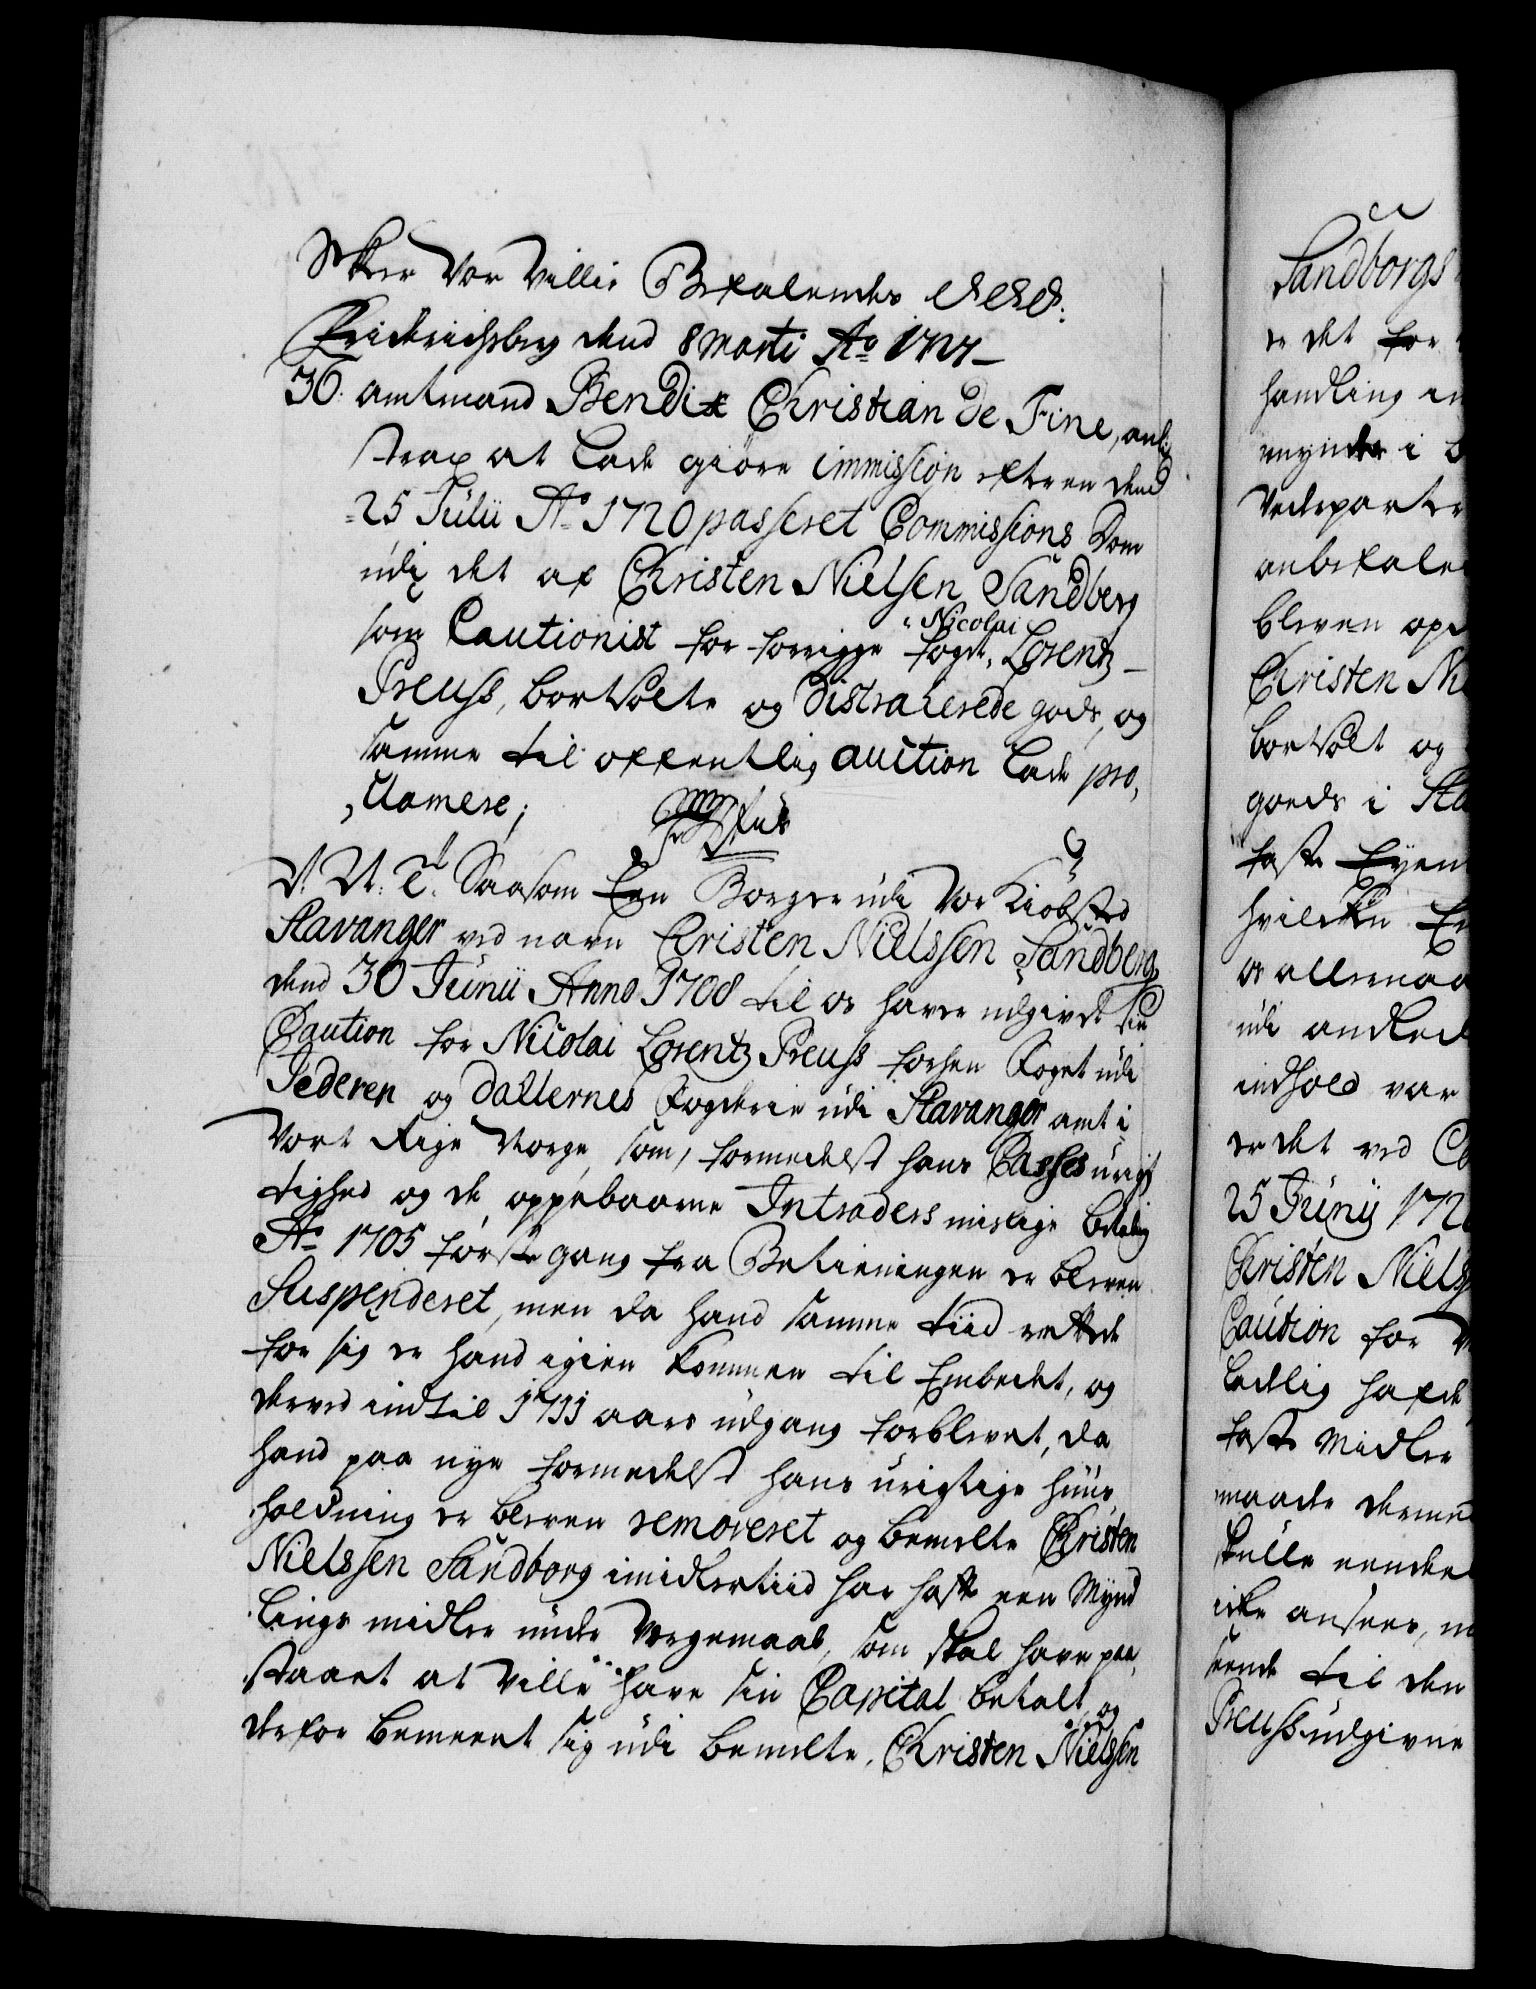 Skeer Vor Villie Befalendes
Friderichsberg dend 8 Marti Ao 1727
36. Amtmand Bendix Christian de Fine, anl:
strax at lade giøre immission efter en dend
25 Julii Ao 1720 passeret Commissions Dom
udj det af Christen Nielsen Sandberg
som Cautionist for forrige foget, Nicolai Lorentz
Preuss, bortsolte og distraherede gods, og
samme til offentlig auction lade pro,
,clamere;
V. U. T. Saasom Een Borger udi Vor Kiøbsted
Stavanger ved navn Christen Nielssen Sandberg
dend 30 Junii Anno 1708 til os haver udgivet sin
Caution for Nicolai Lorentz Preuss forhen Foget udi
Jederen og Dallernes Fogderie udi Stavanger amt i
Vort Rige Norge, som, formedelst hans Casses urig
tighed og de oppebaarne Intraders mislige betaling
Ao 1705 første gang fra Betieningen er bleven
Suspenderet, men da hand samme tiid rettede
for sig er hand igien kommen til Embedet, og
derved indtil 1711 aars udgang forblevet, da
hand paa nye formedelst hans urigtige huus,
holdning er bleven removeret og bemelte Christen
Nielssen Sandborg imidlertiid har haft een Mynd
lings midler under Vergemaal, som skal have paa,
staaet at ville have sin Capital betalt, og
derfor bemeent sig udi bemelte, Christen Nielssen
Sandborgs
er det for
handling
mynde i
Vederparter
anbefale
bleven
Christen
bortsolt og
goeds i
faste Eyen
hvilcken
os allernaa
udi
indhold var
er det ved
25 Junij
Christen Niels
Caution for
lædlig hafde
faste Midler
maade
skulle
icke ansees,
seende til den
Preuss udgivne